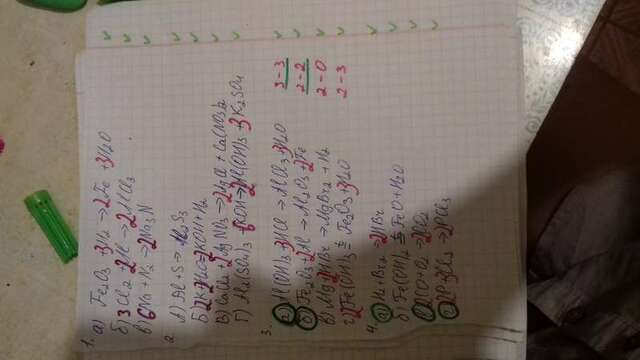 1.
а) Fe₂O₃ + 3H₂ → 2Fe + 3H₂O
б) 3Cl₂ + 2Al → 2AlCl₃
в) 6Na + N₂ → 2Na₃N
2.
А) Al + S → Al₂S₃
Б) 2K + 2H₂O = 2KOH + H₂
В) CaCl₂ + 2AgNO₃ → 2AgCl + Ca(NO₃)₂
Г) Al₂(SO₄)₃ + 6KOH → 2Al(OH)₃ + 3K₂SO₄
3.
а) Al(OH)₃ + 3HCl → AlCl₃ + 3H₂O 3-3
б) Fe₂O₃ + 2Al → Al₂O₃ + 2Fe 2-2
в) Mg + 2HBr → MgBr₂ + H₂ 2-0
г) 2Fe(OH)₃ t= Fe₂O₃ + 3H₂O 2-3
4.
а) H₂ + Br₂ = 2HBr
б) Fe(OH)₂ t= FeO + H₂O
в) 2CO + O₂ → 2CO₂
г) 2P + 3Cl₂ → 2PCl₃